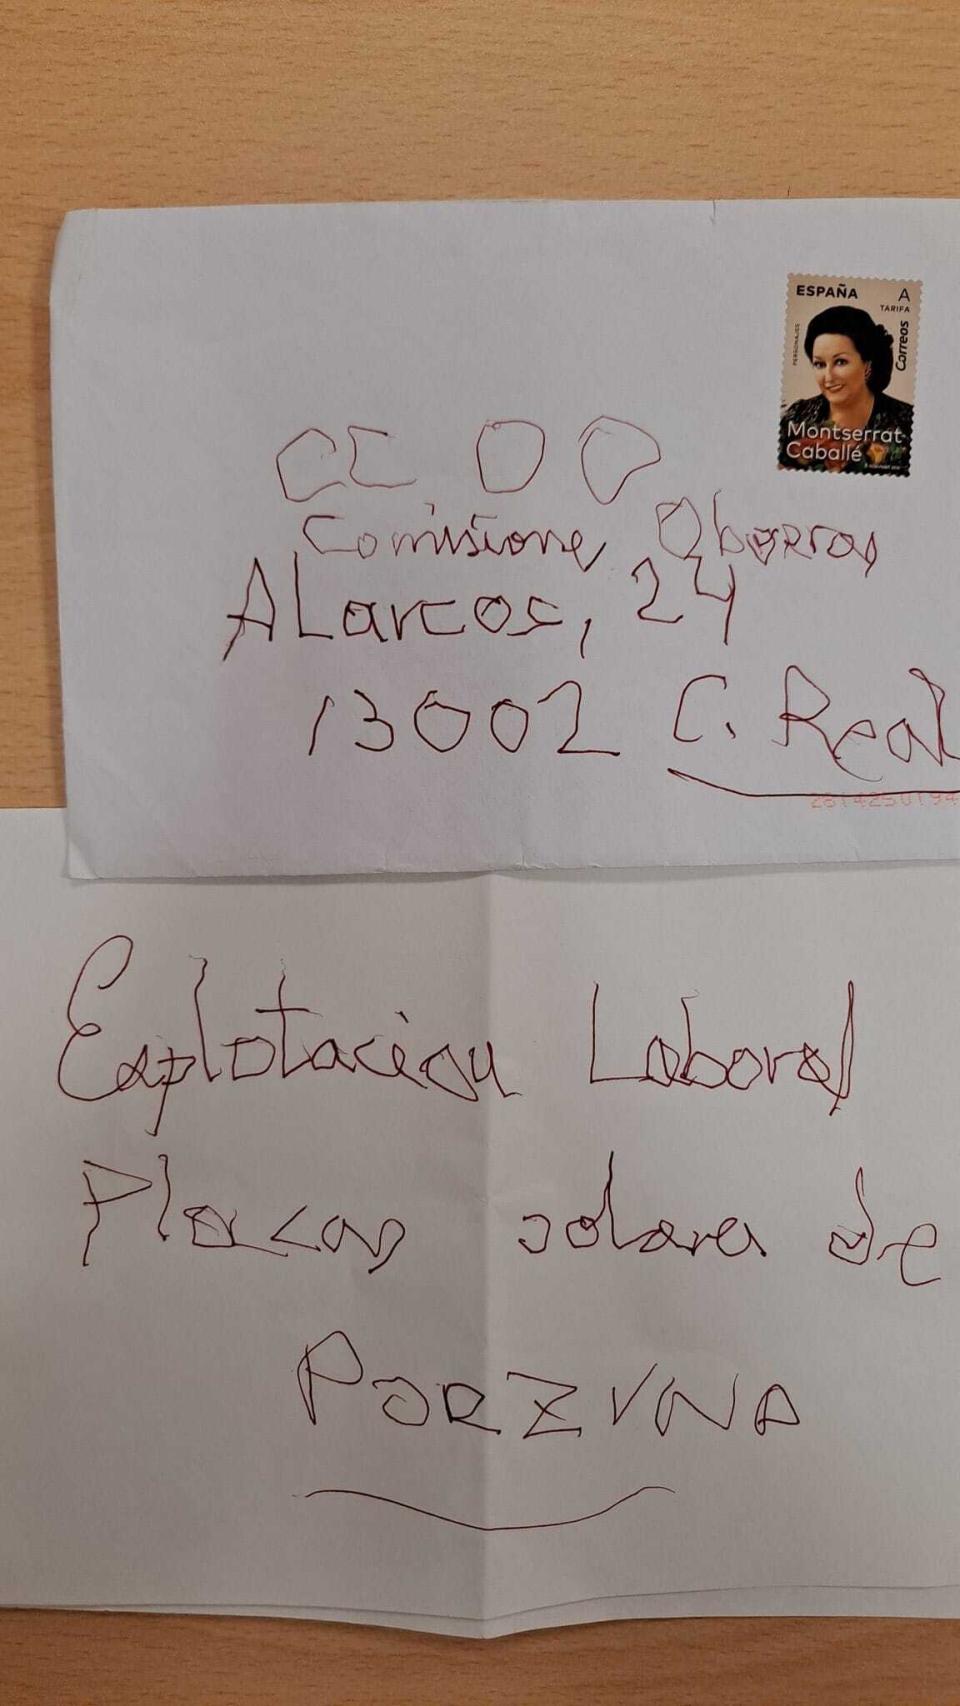 ESPAÑA A
TARIFA
PERSONAJES
Correos
Montserrat
Caballé
CC OO
Comisiones Obreras
ALarcos, 24
13002 C. Real
Explotación Laboral
Placas solares de
PORZUNA